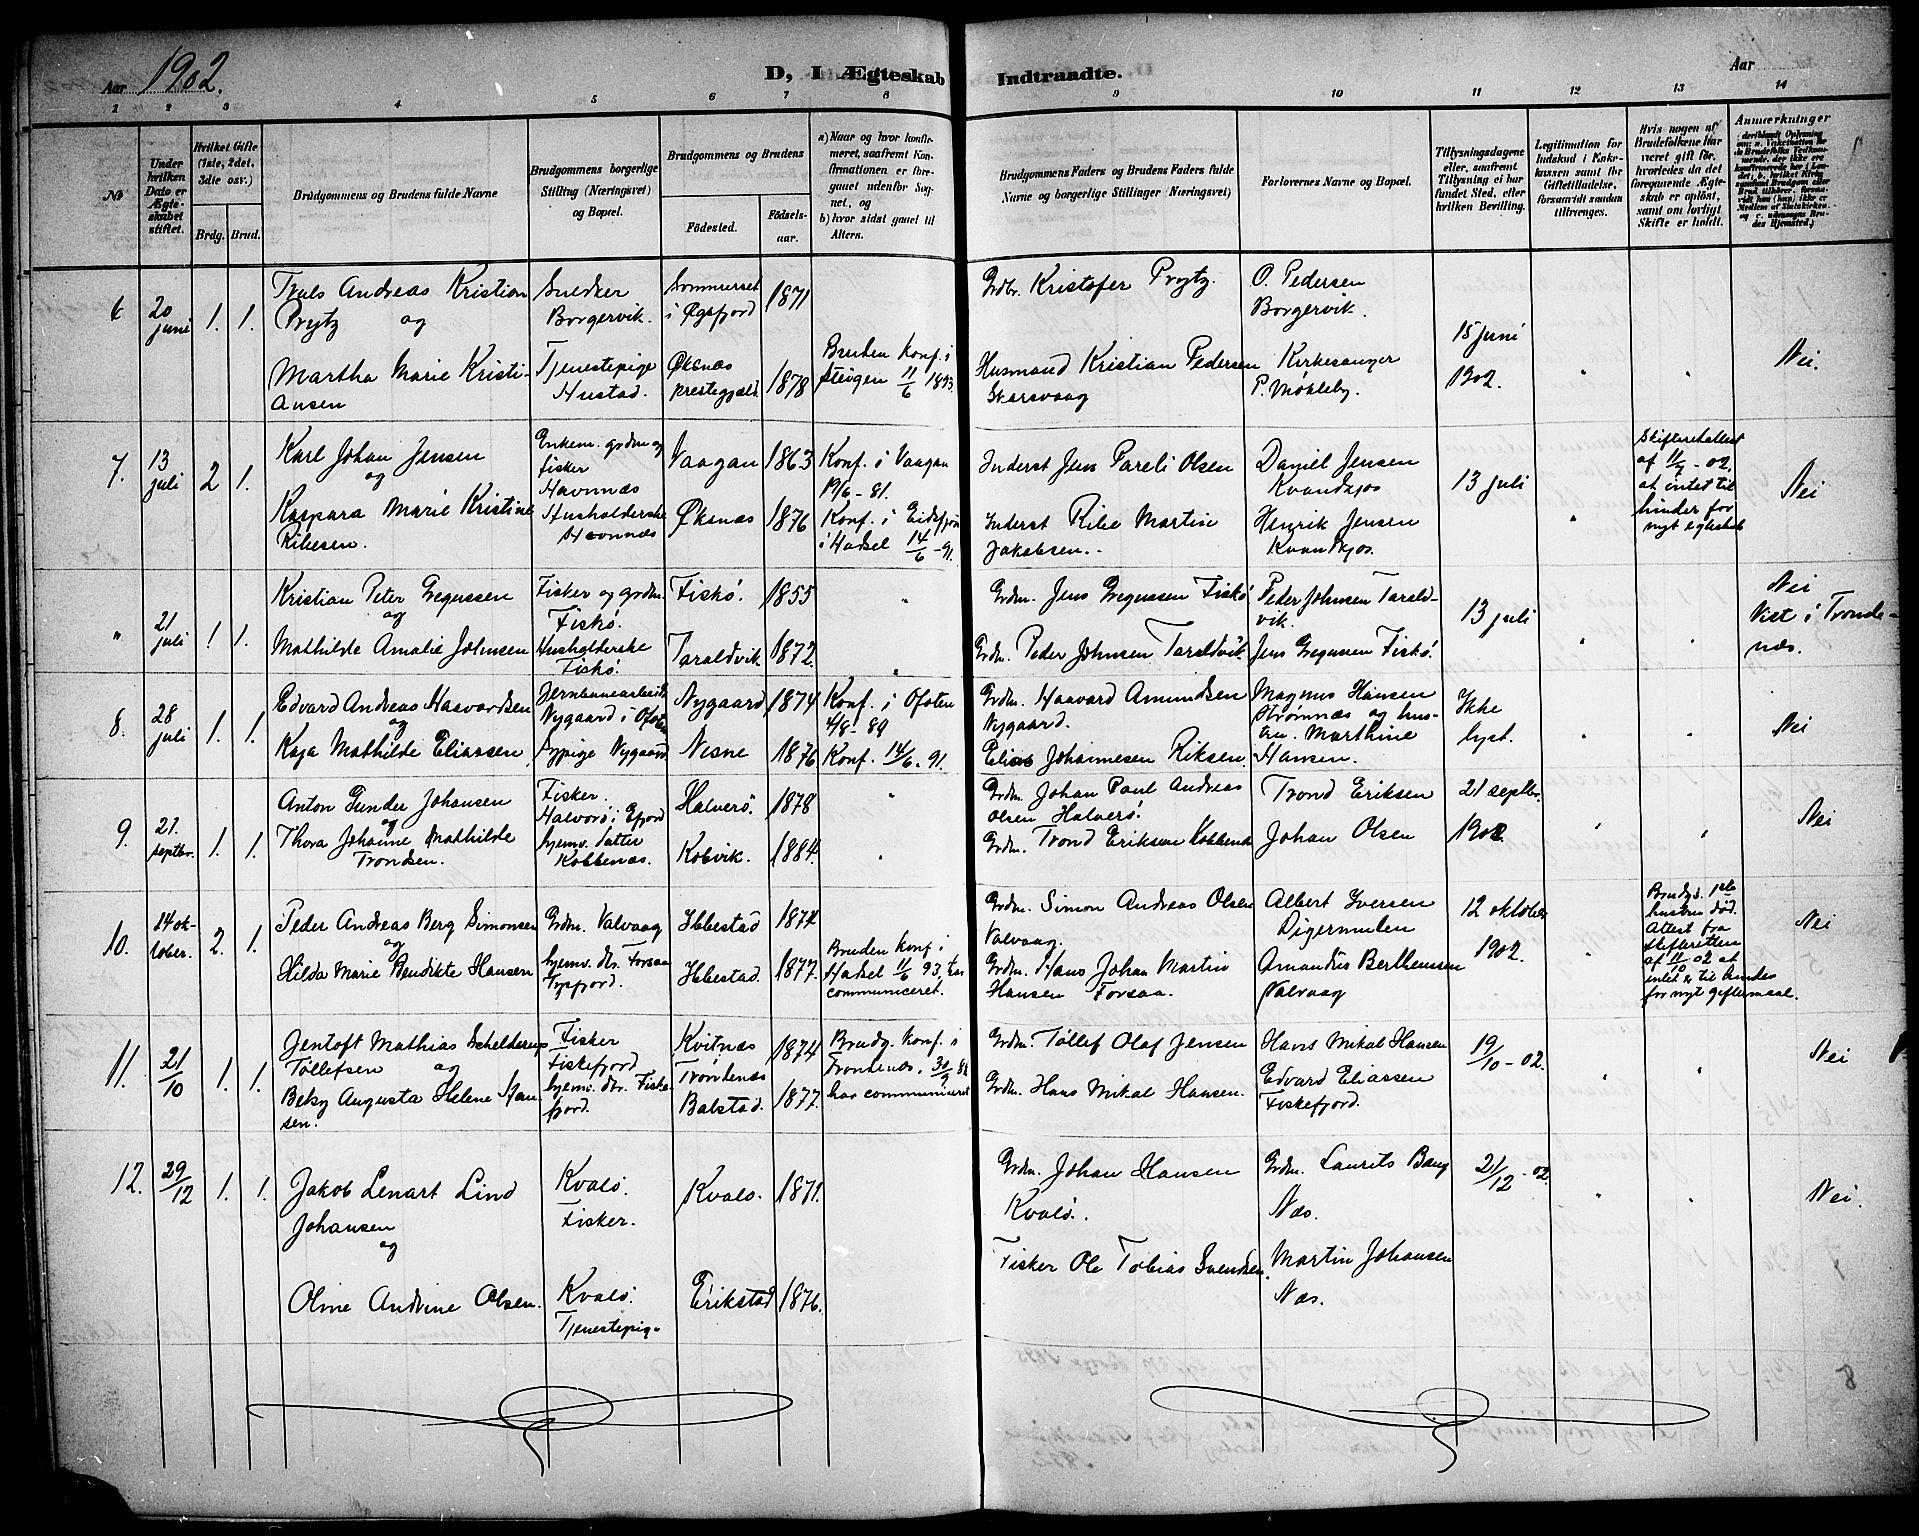 Aar 1902.
D, I Ægteskab Indtraadte.
Aar
1 2 3 4 5 6 7 8 9 10 11 12 13 14
No
Under hvilken Dato er Ægteskabet stiftet.
Hvilket Gifte (1ste, 2det, 3die osv.)
Brdg. Brud.
Brudgommens og Brudens fulde Navne
Brudgommens borgerlige Stilling (Næringsvei) og Bopæl.
Brudgommens og Brudens
Födested.
Födselsaar.
a) Naar og hvor konfirmeret, saafremt Konfirmationen er foregaaet udenfor Sognet, og
b) hvor sidst gaaet til Altern.
Brudgommens Faders og Brudens Faders fulde Navne og borgerlige Stillinger (Næringsvei)
Forlovernes Navne og Bopæl.
Tillysningsdagene eller, saafremt Tillysning ei har fundet Sted, efter hvilken Bevilling.
Legitimation for Indskud i Enkekassen samt for Giftetilladelse, forsaavidt saadan tiltrænges.
Hvis nogen af Brudefolkene har været gift før, hvorledes da det foregaaende Ægteskab er oplöst, samt om lovligt Skifte er holdt.
Anmærkninger
6 20 juni 1. 1.
Truls Andreas Kristian
Prytz og
Snedker
Borgervik.
Sommerset
i Øgsfjord
1871
Grdbr. Kristofer Prytz.
O. Pedersen
Borgervik.
15 juni
1902.
Nei.
Martha Marie Kristi-
ansen
Tjenestepige
Hustad.
Øksnæs
prestegjæld
1878
Bruden Konf. i
Steigen 11/6 1893.
Husmand Kristian Pedersen
Skarsvaag
Kirkesanger
P. Møkleby.
7. 13 juli 2 1.
Karl Johan Jensen
og
Enkem. grdm og
fisker
Havnnæs
Vaagan
1863
Konf. i Vaagan
19/6 - 81.
Inderst Jens Pareli Olsen
Daniel Jensen
Kvandkjos
13 juli
Skifteretsattest
af 11/7 - 02.
at intet til
hinder for
nyt egteskab
Nei
Kaspara Marie Kristine
Ribesen.
Husholderske
Havnnæs
Øksnæs
1876
Konf. i Eidsfjord
i Hadsel 14/6 - 91.
Inderst Ribe Martin
Jakobsen.
Henrik Jensen
Kvandkjos.
" 21 juli 1. 1.
Kristian Peter Gregussen
og
Fisker og grdm.
Fiskø.
Fiskø.
1855
"
Grdm. Jens Gregussen Fiskø
Peder Johnsen Tarald-
vik.
13 juli
Nei
Viet i Tronde-
næs.
Mathilde Amalie Johnsen
Husholderske
Fiskø.
Taraldvik
1872.
"
Grdm. Peder Johnsen Taraldvik
Jens Gregussen Fiskø.
8. 28 juli 1. 1.
Edvard Andreas Haavardsen
og
Jernbanearbeider
Nygaard i Ofoten
Nygaard
1874
Konf. i Ofoten
4/8 - 89
Grdm. Haavard Amundsen
Nygaard.
Magnus Hansen
Strømnæs og hus-
Ikke
lyst.
Nei
Kaja Mathilde Eliassen
Nygaard
Nesne
1876
Konf. 14/6. 91.
Elias Johannesen Riksen.
Marthine
Hansen.
9. 21. septbr. 1. 1.
Anton Gunder Johansen
og
Fisker.
Halvorö i Efjord
Halverö.
1878
"
Grdm. Johan Paul Andreas
Olsen Halverö.
Trond Eriksen
21 septbr.
1902.
Nei
Thora Johanne Mathilde
Trondsen.
hjemv. datter
Kobbenæs.
Kobvik.
1884.
"
Grdm. Trond Eriksen Kobbenæs
Johan Olsen
10. 14 oktober. 2. 1.
Peder Andreas Berg Simonsen
og
Grdm. Valvaag
Ibbestad
1874
Grdm. Simon Andreas Olsen
Valvaag.
Albert Iversen
Digermulen
12 oktober
1902.
Brudg. 1ste
hustru död.
Attest fra
skifteretten
af 11/10 02 at
intet er til hinder
for nyt giftermaal.
Nei
Hilda Marie Bendikte Hansen
hjemv. dtr. Forsaa
Tysfjord.
Ibbestad.
1877.
Bruden Konf. i
Hadsel 11/6 93, har
communiceret.
Grdm. Hans Johan Martin
Hansen Forsaa.
Amandus Bertheussen
Valvaag
11. 21/10 1. 1.
Jentoft Mathias Schelderup
Töllefsen og
Fisker
Fiskefjord
Kvitnæs
Trondenæs
1874
Brudg. Konf. i
Trondenæs. 30/9 88
har communiceret
Grdm. Töllef Olaf Jensen
Hans Mikal Hansen
19/10 - 02.
Nei
Betzy Augusta Helene Han
sen.
hjemv. dtr. Fiske
fjord.
Balstad.
1877.
Grdm. Hans Mikal Hansen.
Edvard Eliassen
Fiskefjord.
12. 29/12 1. 1.
Jakob Lenart Lind
Johansen
og
Kvalö.
Fisker.
Kvalö.
1871.
Grdm. Johan Hansen
Kvalö.
Grdm. Laurits Bang
Næs.
21/12 - 02.
Nei.
Oline Andrine Olsen.
Kvalö.
Tjenestepige
Erikstad
1876.
Fisker Ole Tobias Svendsen.
Martin Johansen
Næs.